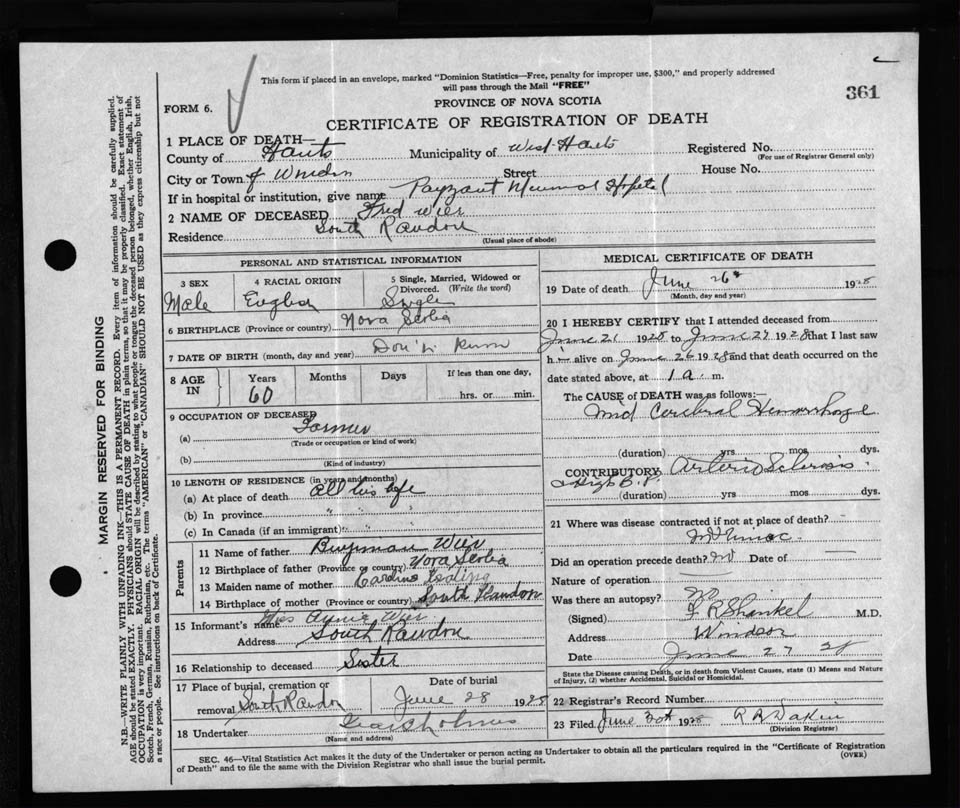 This form if placed in an envelope, marked "Dominion Statistics—Free, penalty for improper use, $300," and properly addressed
will pass through the Mail "FREE"
361
FORM 6.
PROVINCE OF NOVA SCOTIA
CERTIFICATE OF REGISTRATION OF DEATH
1 PLACE OF DEATH—
County of Hants Municipality of West Hants Registered No.
(For use of Registrar General only)
City or Town of Windsor Street House No.
If in hospital or institution, give name Payzant Memorial Hospital
2 NAME OF DECEASED Fred Wier
Residence South Rawdon
(Usual place of abode)
PERSONAL AND STATISTICAL INFORMATION
3 SEX 4 RACIAL ORIGIN 5 Single, Married, Widowed or
Divorced. (Write the word)
Male English Single
6 BIRTHPLACE (Province or country) Nova Scotia
7 DATE OF BIRTH (month, day and year) Don't know
8 AGE IN Years Months Days If less than one day,
60 hrs. or min.
9 OCCUPATION OF DECEASED
(a) Farmer
(Trade or occupation or kind of work)
(b)
(Kind of industry)
10 LENGTH OF RESIDENCE (in years and months)
(a) At place of death all his life
(b) In province " "
(c) In Canada (if an immigrant) " "
Parents
11 Name of father Benjaman Wier
12 Birthplace of father (Province or country) Nova Scotia
13 Maiden name of mother
14 Birthplace of mother (Province or country) South Rawdon
15 Informant's name Mrs Annie Wier
Address South Rawdon
16 Relationship to deceased Sister
17 Place of burial, cremation or Date of burial
removal South Rawdon June 28 1928
18 Undertaker Holmes
(Name and address)
MEDICAL CERTIFICATE OF DEATH
19 Date of death June 26 1928
(Month, day and year)
20 I HEREBY CERTIFY that I attended deceased from
June 21 1928 to June 27 1928 that I last saw
h alive on June 26 1928 and that death occurred on the
date stated above, at 1 a m.
The CAUSE of DEATH was as follows:—
Mid Cerebral Hemorrhage
(duration) yrs mos dys.
CONTRIBUTORY Arterio Sclerosis
High B.P.
(duration) yrs mos dys.
21 Where was disease contracted if not at place of death?
Did an operation precede death? No Date of
Nature of operation
Was there an autopsy? No
(Signed) F R Shankel M.D.
Address Windsor
Date June 27 28
State the Disease causing Death, or in death from Violent Causes, state (1) Means and Nature
of Injury, (2) whether Accidental, Suicidal or Homicidal.
22 Registrar's Record Number
23 Filed June 30th 1928 R A Dakin
(Division Registrar)
SEC. 46—Vital Statistics Act makes it the duty of the Undertaker or person acting as Undertaker to obtain all the particulars required in the "Certificate of Registration
of Death" and to file the same with the Division Registrar who shall issue the burial permit.
(OVER)
MARGIN RESERVED FOR BINDING
N.B.—WRITE PLAINLY WITH UNFADING INK—THIS IS A PERMANENT RECORD. Every item of information should be carefully supplied.
AGE should be stated EXACTLY. PHYSICIANS should STATE CAUSE OF DEATH in plain terms, so that it may be properly classified. Exact statement of
OCCUPATION is very important. RACIAL ORIGIN will be described by stating to what people or tongue the deceased person belonged, whether English, Irish,
Scotch, French, German, Russian, Ruthenian, etc. The terms "AMERICAN" or "CANADIAN" SHOULD NOT BE USED as they express citizenship but not
a race or people. See instructions on back of Certificate.